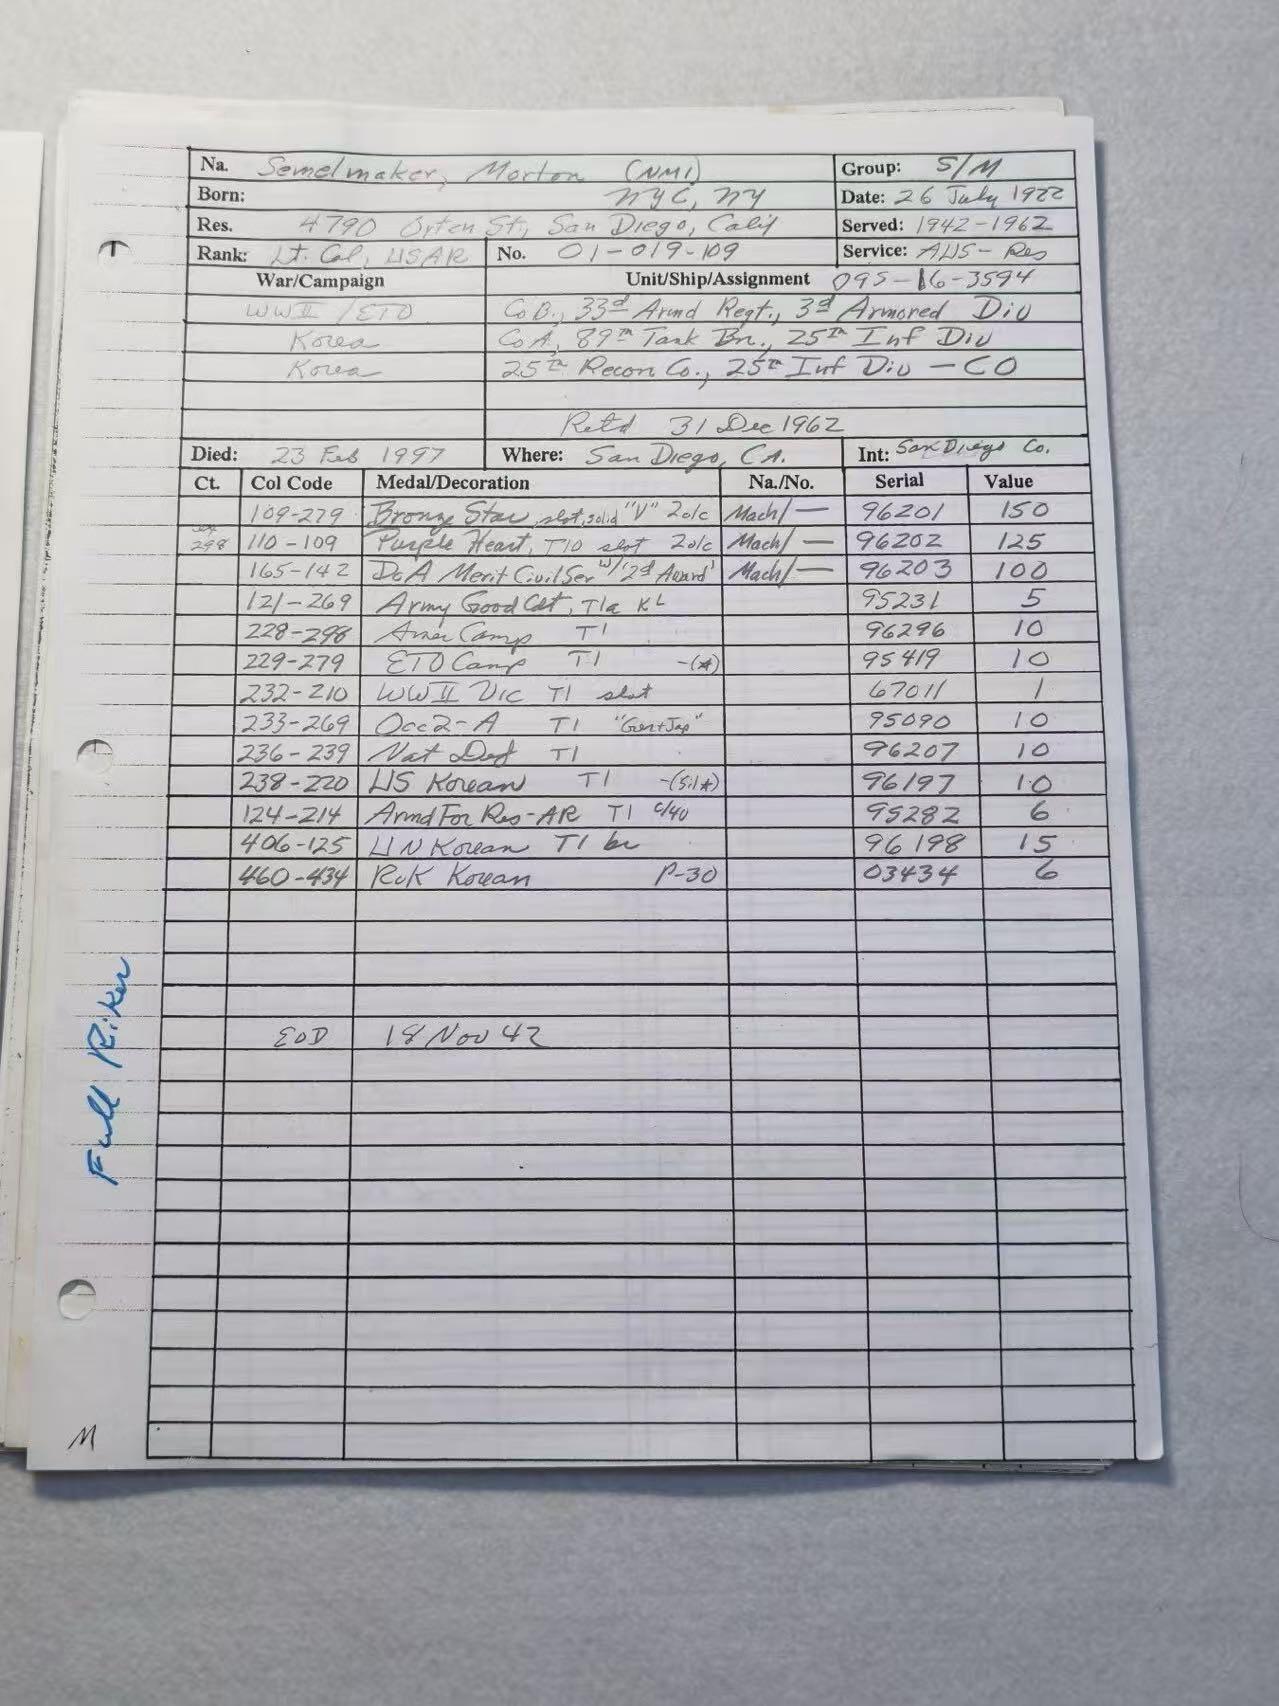 Na. Semelmaker, Morton (NMI) Group: S/M
Born: NYC, NY Date: 26 July 1922
Res. 4790 Orten St, San Diego, Calif Served: 1942-1962
Rank: Lt. Col, USAR No. 01-019-109 Service: AUS-Res
War/Campaign Unit/Ship/Assignment 095-16-3594
WWII/ETO Co B., 33rd Armd Regt., 3rd Armored Div
Korea Co A, 89th Tank Bn., 25th Inf Div
Korea 25th Recon Co., 25th Inf Div - CO
Retd 31 Dec 1962
Died: 23 Feb 1997 Where: San Diego, CA. Int: San Diego Co.
Ct. Col Code Medal/Decoration Na./No. Serial Value
109-279 Bronze Star, slot, solid "V" 2olc Mach/— 96201 150
298 110-109 Purple Heart, T10 slot 2olc Mach/— 96202 125
165-142 DoA Merit Civil Ser w/"2d Award" Mach/— 96203 100
121-269 Army Good Cdt, T1a KL 95231 5
228-298 Amer Camp T1 96296 10
229-279 ETO Camp T1 -(*) 95419 10
232-210 WWII Vic T1 slot 67011 1
233-269 Occ2-A T1 "Ger+Jap" 95090 10
236-239 Nat Def T1 96207 10
238-220 US Korean T1 -(Sil*) 96197 10
124-214 Armd For Res-AR T1 c/40 95282 6
406-125 UN Korean T1 br 96198 15
460-434 RoK Korean P-30 03434 6
EOD 18 Nov 42
Full Riker
M